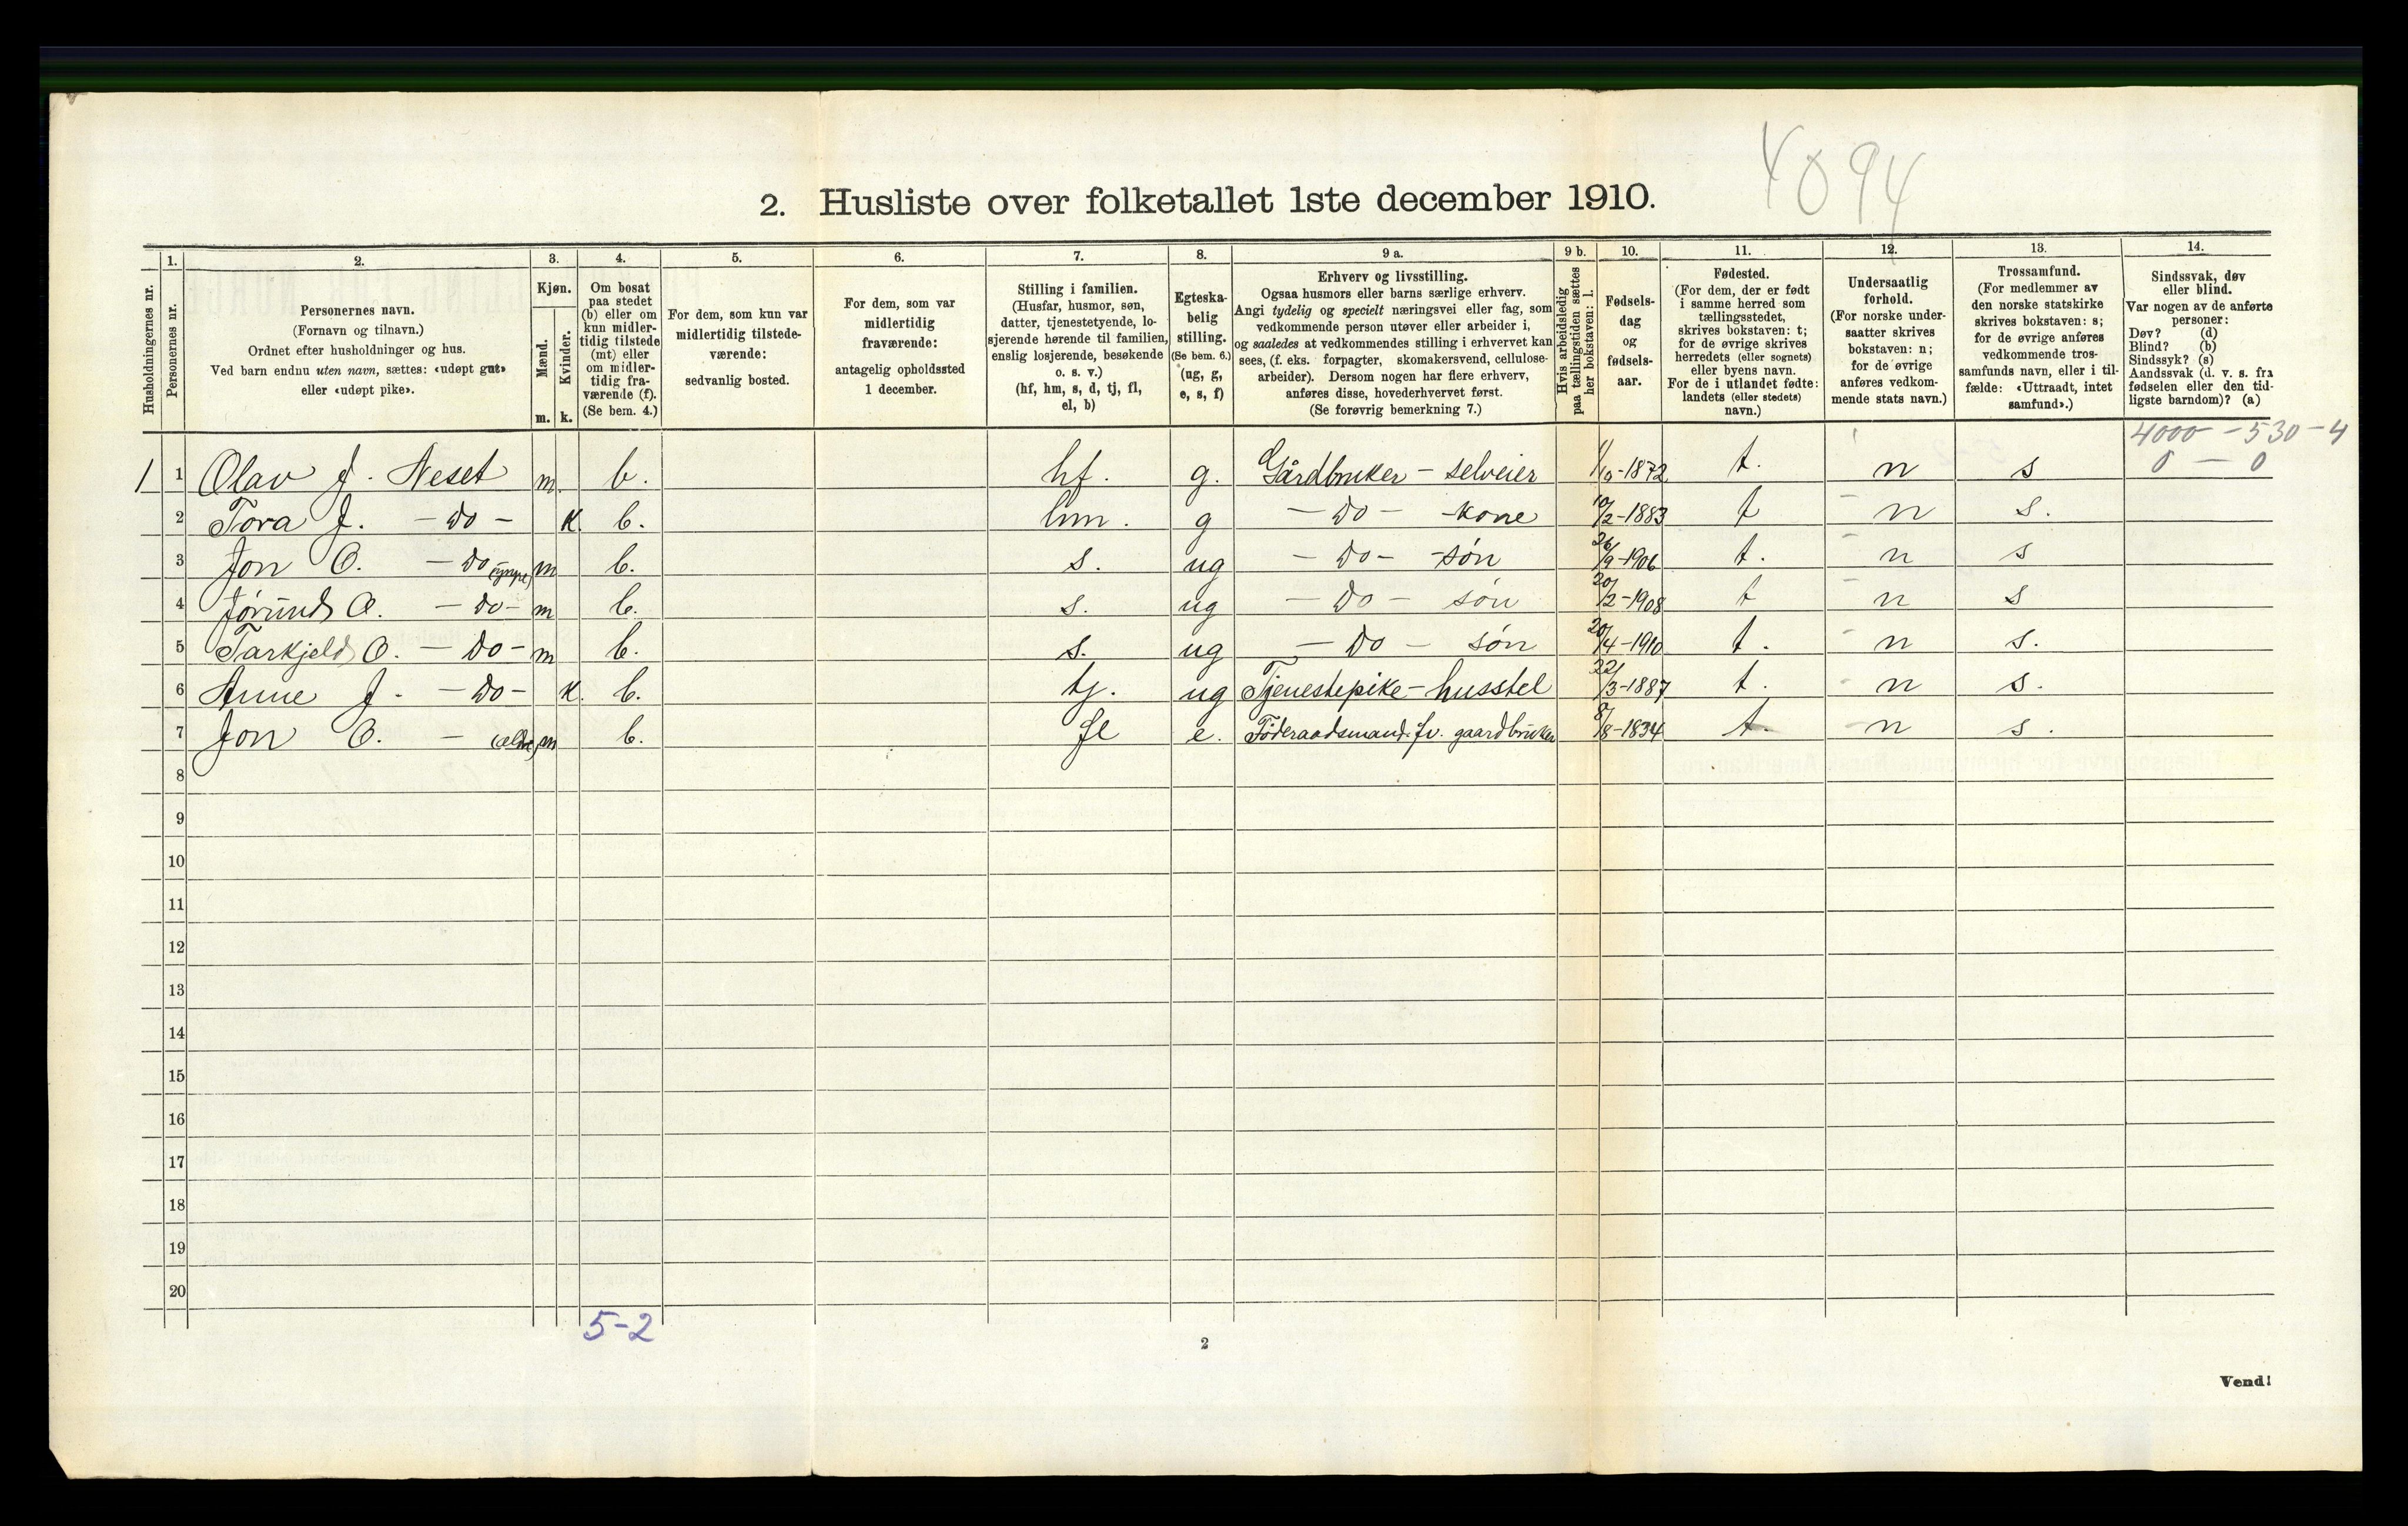 4094
2. Husliste over folketallet 1ste december 1910.
Husholdningernes nr.
1.
Personernes nr.
2.
Personernes navn.
(Fornavn og tilnavn.)
Ordnet efter husholdninger og hus.
Ved barn endnu uten navn, sættes: «udøpt gut»
eller «udøpt pike».
3.
Kjøn.
Mænd.
m.
Kvinder.
k.
4.
Om bosat
paa stedet
(b) eller om
kun midler-
tidig tilstede
(mt) eller
om midler-
tidig fra-
værende (f).
(Se bem. 4.)
5.
For dem, som kun var
midlertidig tilstede-
værende:
sedvanlig bosted.
6.
For dem, som var
midlertidig
fraværende:
antagelig opholdssted
1 december.
7.
Stilling i familien.
(Husfar, husmor, søn,
datter, tjenestetyende, lo-
sjerende hørende til familien,
enslig losjerende, besøkende
o. s. v.)
(hf, hm, s, d, tj, fl,
el, b)
8.
Egteska-
belig
stilling.
(Se bem. 6.)
(ug, g,
e, s, f)
9 a.
Erhverv og livsstilling.
Ogsaa husmors eller barns særlige erhverv.
Angi tydelig og specielt næringsvei eller fag, som
vedkommende person utøver eller arbeider i,
og saaledes at vedkommendes stilling i erhvervet kan
sees, (f. eks. forpagter, skomakersvend, cellulose-
arbeider). Dersom nogen har flere erhverv,
anføres disse, hovederhvervet først.
(Se forøvrig bemerkning 7.)
9 b.
Hvis arbeidsledig
paa tællingstiden sættes
her bokstaven: l.
10.
Fødsels-
dag
og
fødsels-
aar.
11.
Fødested.
(For dem, der er født
i samme herred som
tællingsstedet,
skrives bokstaven: t;
for de øvrige skrives
herredets (eller sognets)
eller byens navn.
For de i utlandet fødte:
landets (eller stedets)
navn.)
12.
Undersaatlig
forhold.
(For norske under-
saatter skrives
bokstaven: n;
for de øvrige
anføres vedkom-
mende stats navn.)
13.
Trossamfund.
(For medlemmer av
den norske statskirke
skrives bokstaven: s;
for de øvrige anføres
vedkommende tros-
samfunds navn, eller i til-
fælde: «Uttraadt, intet
samfund».)
14.
Sindssvak, døv
eller blind.
Var nogen av de anførte
personer:
Døv? (d)
Blind? (b)
Sindssyk? (s)
Aandssvak (d. v. s. fra
fødselen eller den tid-
ligste barndom)? (a)
4000 - 530 - 4
0 - 0
1 1 Olav J. Neset m. b. hf. g. Gårdbruker - selveier 1/10-1872 t. n s
2 Tora J. - do - k. b. hm. g - do - -kone 10/2-1883 t n s.
3 Jon O. - do (yngre) m b. s. ug - do - -søn 26/9-1906 t. n s
4 Jørund O. - do - m b. s. ug - do - søn 20/2-1908 t n s
5 Tarkjeld O. - do - m b. s. ug - do - søn 20/4-1910 t. n s.
6 Anne J. - do - k. b. tj. ug Tjenestepike - husstel 22/3-1887 t. n s.
7 Jon O. - (ældre) m b. fl e. Föderaadsmand. fv. gaardbruker 8/8-1834 t. n s.
8
9
10
11
12
13
14
15
16
17
18
19
20
5-2
2
Vend!